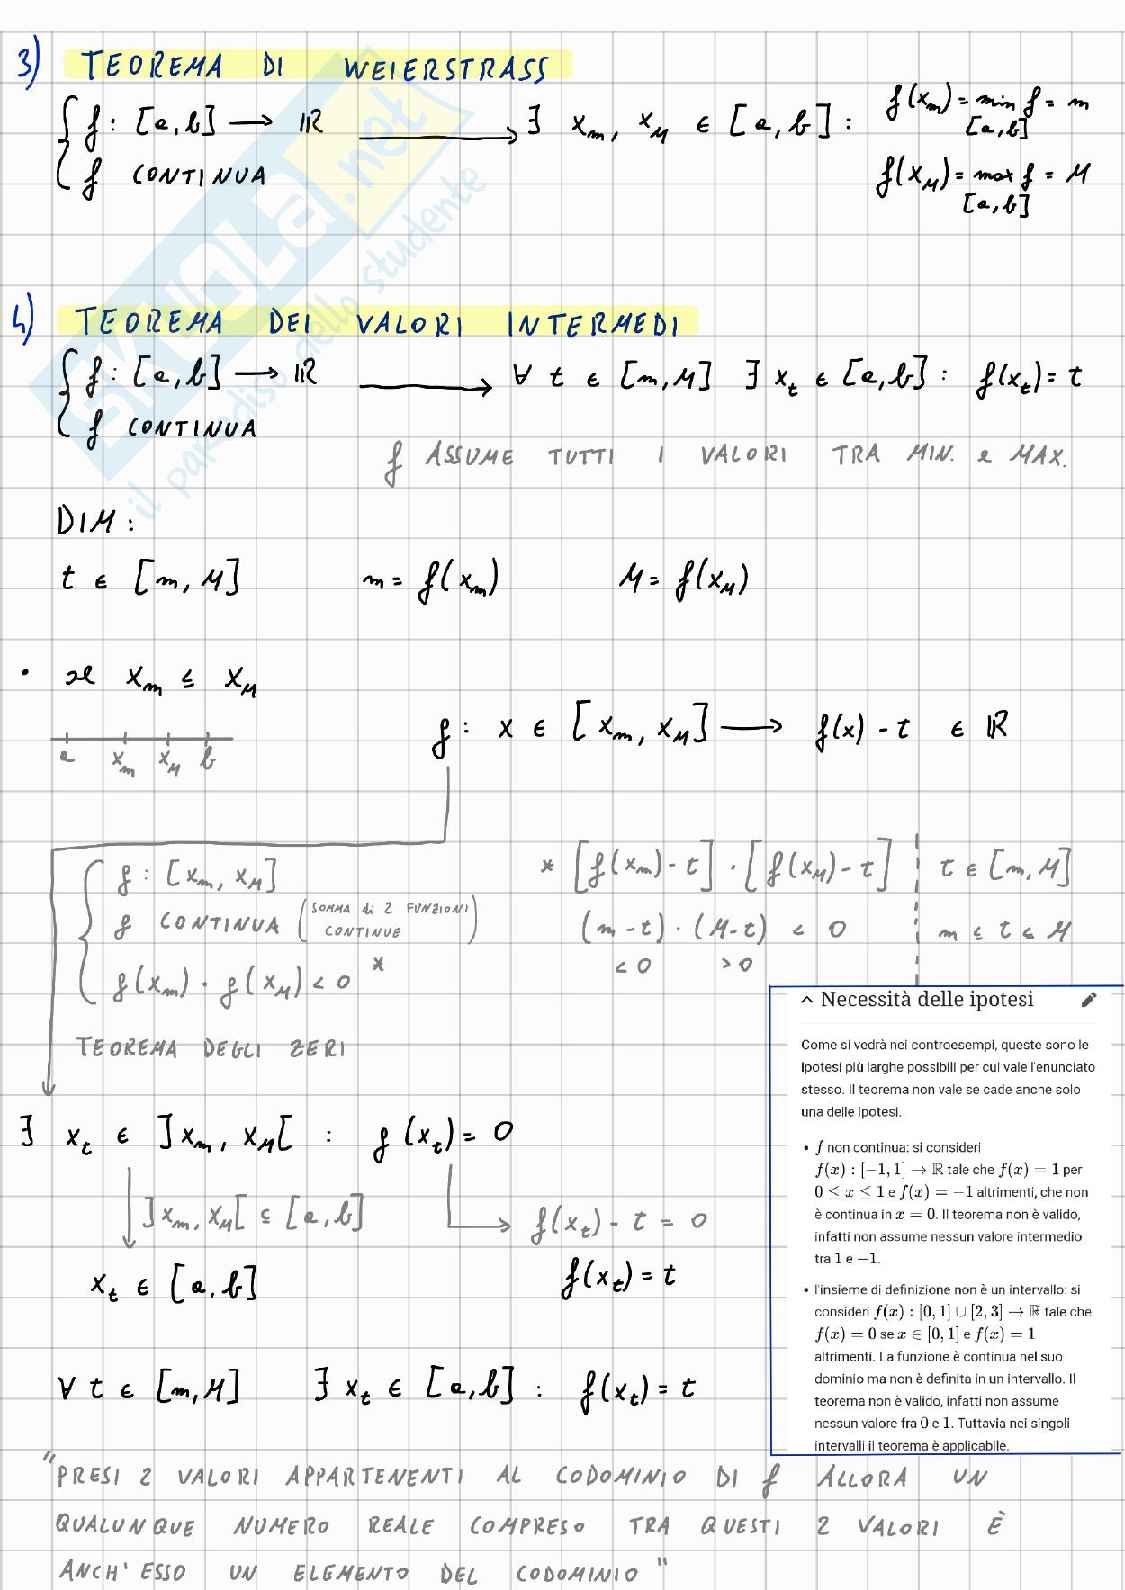 3) TEOREMA DI WEIERSTRASS
{ f : [a, b] → ℝ → ∃ xₘ, x_M ∈ [a, b] : f(xₘ) = min f = m
[a, b]
f CONTINUA f(x_M) = max f = M
[a, b]
4) TEOREMA DEI VALORI INTERMEDI
{ f : [a, b] → ℝ → ∀ t ∈ [m, M] ∃ xₜ ∈ [a, b] : f(xₜ) = t
f CONTINUA
f ASSUME TUTTI I VALORI TRA MIN. e MAX.
DIM :
t ∈ [m, M] m = f(xₘ) M = f(x_M)
• se xₘ ≤ x_M
g : x ∈ [xₘ, x_M] → f(x) - t ∈ ℝ
a xₘ x_M b
{ g : [xₘ, x_M] * [f(xₘ) - t] · [f(x_M) - t] t ∈ [m, M]
g CONTINUA (SOMMA di 2 FUNZIONI CONTINUE) (m - t) · (M - t) < 0 m ≤ t ≤ M
g(xₘ) · g(x_M) < 0 * < 0 > 0
TEOREMA DEGLI ZERI
^ Necessità delle ipotesi
Come si vedrà nei controesempi, queste sono le
ipotesi più larghe possibili per cui vale l'enunciato
stesso. Il teorema non vale se cade anche solo
una delle ipotesi.
• f non continua: si consideri
f(x) : [−1, 1] → ℝ tale che f(x) = 1 per
0 < x < 1 e f(x) = −1 altrimenti, che non
è continua in x = 0. Il teorema non è valido,
infatti non assume nessun valore intermedio
tra 1 e −1.
• l'insieme di definizione non è un intervallo: si
consideri f(x) : [0, 1] ∪ [2, 3] → ℝ tale che
f(x) = 0 se x ∈ [0, 1] e f(x) = 1
altrimenti. La funzione è continua nel suo
dominio ma non è definita in un intervallo. Il
teorema non è valido, infatti non assume
nessun valore fra 0 e 1. Tuttavia nei singoli
intervalli il teorema è applicabile.
∃ xₜ ∈ ]xₘ, x_M[ : g(xₜ) = 0
]xₘ, x_M[ ⊆ [a, b] f(xₜ) - t = 0
xₜ ∈ [a, b] f(xₜ) = t
∀ t ∈ [m, M] ∃ xₜ ∈ [a, b] : f(xₜ) = t
"PRESI 2 VALORI APPARTENENTI AL CODOMINIO DI f ALLORA UN
QUALUNQUE NUMERO REALE COMPRESO TRA QUESTI 2 VALORI È
ANCH'ESSO UN ELEMENTO DEL CODOMINIO"
SKUOLA.net
il paradiso dello studente